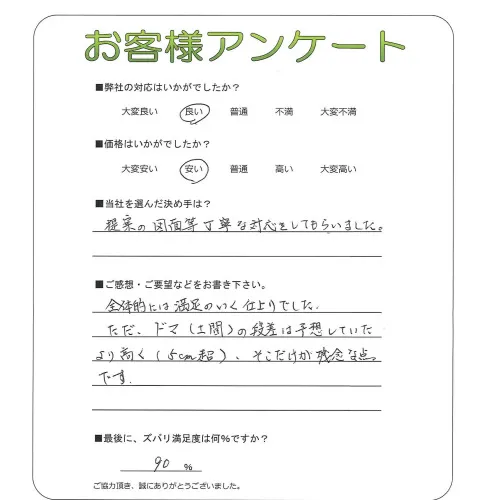 お客様アンケート
■弊社の対応はいかがでしたか？
大変良い 良い 普通 不満 大変不満
■価格はいかがでしたか？
大変安い 安い 普通 高い 大変高い
■当社を選んだ決め手は？
提案の図面等丁寧な対応をしてもらいました。
■ご感想・ご要望などをお書き下さい。
全体的には満足のいく仕上りでした。
ただ、ドマ（土間）の段差は予想していた
より高く（5cm超）、そこだけが残念な点
です。
■最後に、ズバリ満足度は何%ですか？
90 %
ご協力頂き、誠にありがとうございました。